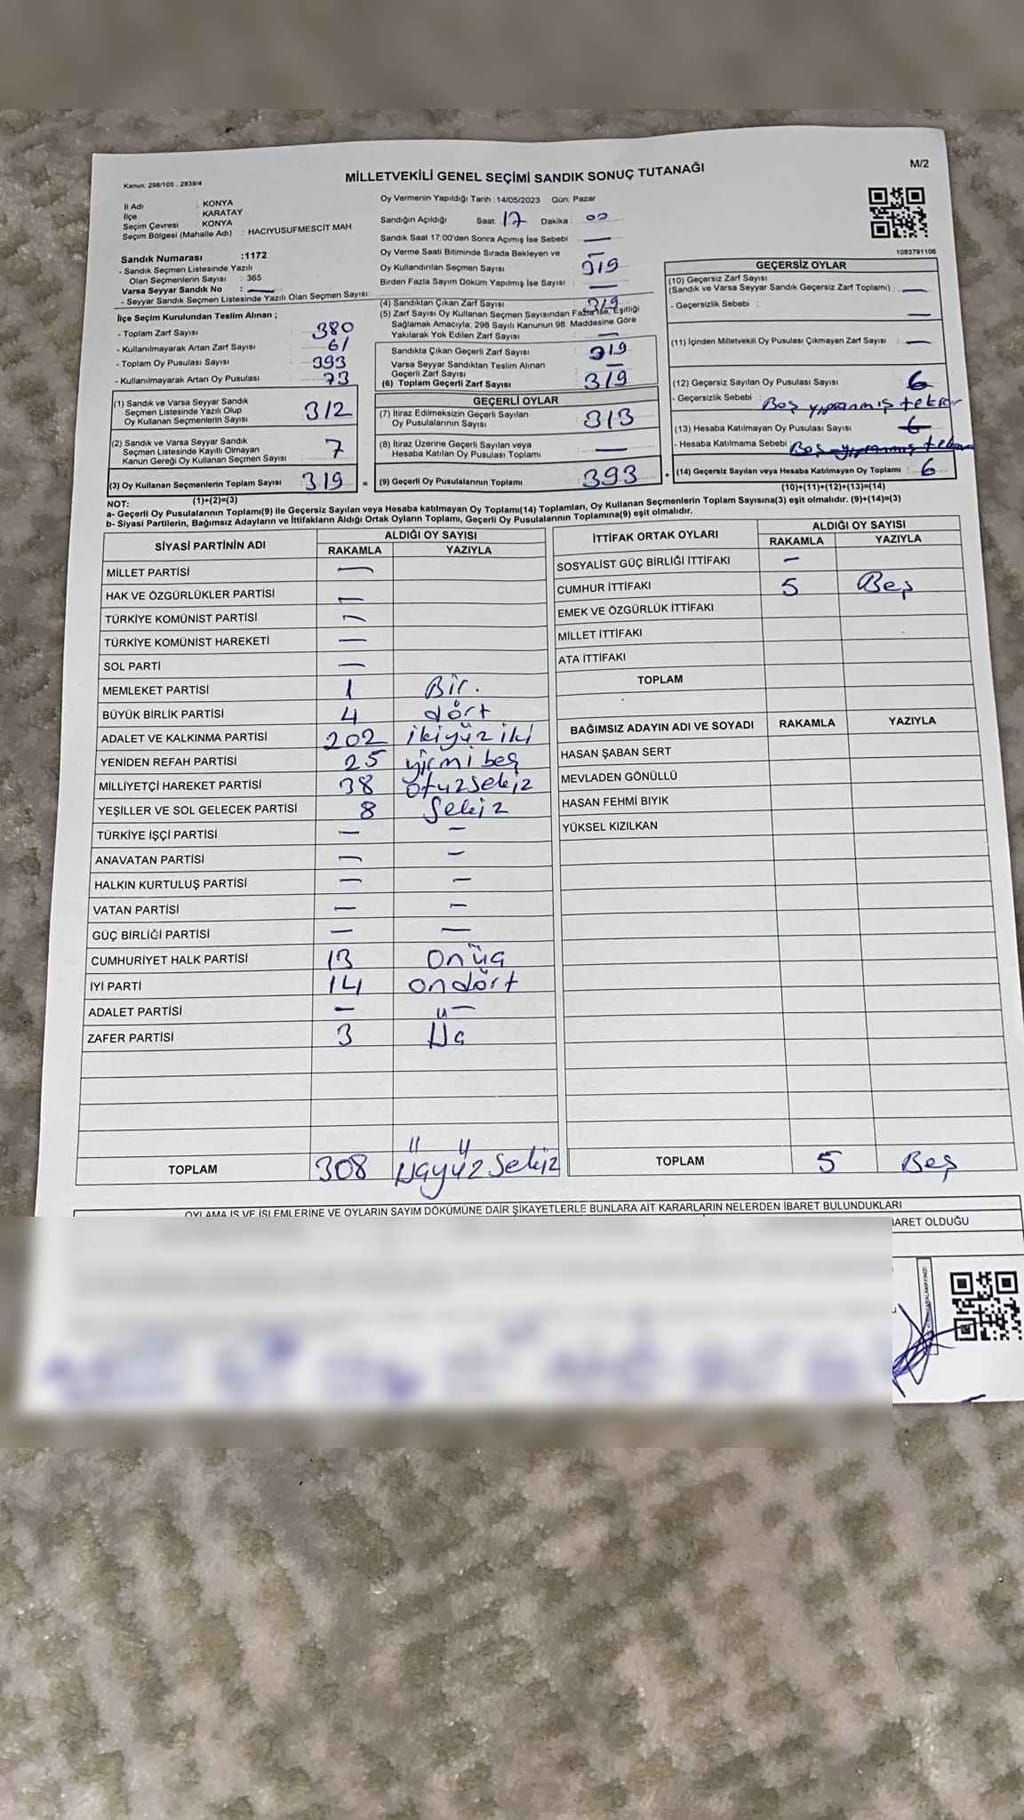 M/2
Kanun: 298/105 , 2839/4
MİLLETVEKİLİ GENEL SEÇİMİ SANDIK SONUÇ TUTANAĞI
İl Adı : KONYA
İlçe : KARATAY
Seçim Çevresi : KONYA
Seçim Bölgesi (Mahalle Adı) : HACIYUSUFMESCİT MAH
Sandık Numarası :1172
- Sandık Seçmen Listesinde Yazılı
Olan Seçmenlerin Sayısı : 365
Varsa Seyyar Sandık No : —
- Seyyar Sandık Seçmen Listesinde Yazılı Olan Seçmen Sayısı:
İlçe Seçim Kurulundan Teslim Alınan ;
- Toplam Zarf Sayısı 380
- Kullanılmayarak Artan Zarf Sayısı 61
- Toplam Oy Pusulası Sayısı 393
- Kullanılmayarak Artan Oy Pusulası 73
(1) Sandık ve Varsa Seyyar Sandık
Seçmen Listesinde Yazılı Olup
Oy Kullanan Seçmenlerin Sayısı 312
(2) Sandık ve Varsa Seyyar Sandık
Seçmen Listesinde Kayıtlı Olmayan
Kanun Gereği Oy Kullanan Seçmen Sayısı 7
(3) Oy Kullanan Seçmenlerin Toplam Sayısı 319
(1)+(2)=(3)
Oy Vermenin Yapıldığı Tarih :14/05/2023 Gün: Pazar
Sandığın Açıldığı Saat: 17 Dakika 00
Sandık Saat 17:00'den Sonra Açılmış İse Sebebi —
Oy Verme Saati Bitiminde Sırada Bekleyen ve —
Oy Kullandırılan Seçmen Sayısı 319
Birden Fazla Sayım Döküm Yapılmış İse Sayısı —
(4) Sandıktan Çıkan Zarf Sayısı 319
(5) Zarf Sayısı Oy Kullanan Seçmen Sayısından Fazla ise, Eşitliği
Sağlamak Amacıyla; 298 Sayılı Kanunun 98. Maddesine Göre
Yakılarak Yok Edilen Zarf Sayısı —
Sandıkta Çıkan Geçerli Zarf Sayısı 319
Varsa Seyyar Sandıktan Teslim Alınan
Geçerli Zarf Sayısı —
(6) Toplam Geçerli Zarf Sayısı 319
GEÇERLİ OYLAR
(7) İtiraz Edilmeksizin Geçerli Sayılan
Oy Pusulalarının Sayısı 313
(8) İtiraz Üzerine Geçerli Sayılan veya
Hesaba Katılan Oy Pusulası Toplamı —
(9) Geçerli Oy Pusulalarının Toplamı 393
1083791106
GEÇERSİZ OYLAR
(10) Geçersiz Zarf Sayısı
(Sandık ve Varsa Seyyar Sandık Geçersiz Zarf Toplamı) —
- Geçersizlik Sebebi : —
(11) İçinden Milletvekili Oy Pusulası Çıkmayan Zarf Sayısı —
(12) Geçersiz Sayılan Oy Pusulası Sayısı 6
- Geçersizlik Sebebi : Boş yıpranmış tekrar
(13) Hesaba Katılmayan Oy Pusulası Sayısı 6
- Hesaba Katılmama Sebebi : Boş yıpranmış
(14) Geçersiz Sayılan veya Hesaba Katılmayan Oy Toplamı : 6
(10)+(11)+(12)+(13)=(14)
NOT:
a- Geçerli Oy Pusulalarının Toplam(9) ile Geçersiz Sayılan veya Hesaba katılmayan Oy Toplamı(14) Toplamları, Oy Kullanan Seçmenlerin Toplam Sayısına(3) eşit olmalıdır. (9)+(14)=(3)
b- Siyasi Partilerin, Bağımsız Adayların ve İttifakların Aldığı Ortak Oyların Toplamı, Geçerli Oy Pusulalarının Toplamına(9) eşit olmalıdır.
SİYASİ PARTİNİN ADI ALDIĞI OY SAYISI
RAKAMLA YAZIYLA
MİLLET PARTİSİ —
HAK VE ÖZGÜRLÜKLER PARTİSİ —
TÜRKİYE KOMÜNİST PARTİSİ —
TÜRKİYE KOMÜNİST HAREKETİ —
SOL PARTİ —
MEMLEKET PARTİSİ 1 Bir.
BÜYÜK BİRLİK PARTİSİ 4 dört
ADALET VE KALKINMA PARTİSİ 202 ikiyüz iki
YENİDEN REFAH PARTİSİ 25 yirmi beş
MİLLİYETÇİ HAREKET PARTİSİ 38 Otuzsekiz
YEŞİLLER VE SOL GELECEK PARTİSİ 8 Sekiz
TÜRKİYE İŞÇİ PARTİSİ — —
ANAVATAN PARTİSİ — —
HALKIN KURTULUŞ PARTİSİ — —
VATAN PARTİSİ — —
GÜÇ BİRLİĞİ PARTİSİ — —
CUMHURİYET HALK PARTİSİ 13 Onüç
İYİ PARTİ 14 ondört
ADALET PARTİSİ — —
ZAFER PARTİSİ 3 Üç
TOPLAM 308 Üçyüz Sekiz
İTTİFAK ORTAK OYLARI ALDIĞI OY SAYISI
RAKAMLA YAZIYLA
SOSYALİST GÜÇ BİRLİĞİ İTTİFAKI —
CUMHUR İTTİFAKI 5 Beş
EMEK VE ÖZGÜRLÜK İTTİFAKI
MİLLET İTTİFAKI
ATA İTTİFAKI
TOPLAM
BAĞIMSIZ ADAYIN ADI VE SOYADI RAKAMLA YAZIYLA
HASAN ŞABAN SERT
MEVLADEN GÖNÜLLÜ
HASAN FEHMİ BIYIK
YÜKSEL KIZILKAN
TOPLAM 5 Beş
OYLAMA İŞ VE İŞLEMLERİNE VE OYLARIN SAYIM DÖKÜMÜNE DAİR ŞİKAYETLERLE BUNLARA AİT KARARLARIN NELERDEN İBARET BULUNDUKLARI
BARET OLDUĞU